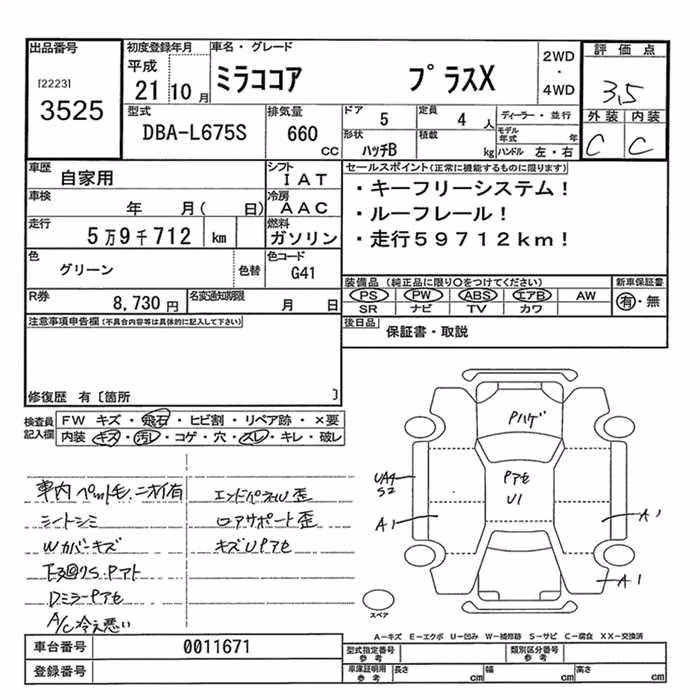 出品番号 初度登録年月 車名・グレード 評価点
[2223] 平成 2WD
3525 21 10月 ミラココア プラスX ・ 3.5
4WD
型式 排気量 ドア 定員 ディーラー・並行 外装 内装
DBA-L675S 660 cc 5 4人 モデル年式 年 C C
形状 積載
ハッチB kg ハンドル 左・右
車歴 シフト セールスポイント(正常に機能するものに限ります)
自家用 IAT ・キーフリーシステム!
車検 冷房
年 月( 日) AAC ・ルーフレール!
走行 燃料
5万9千712 km ガソリン ・走行59712km!
色 色替 色コード 装備品(純正品に限り○をつけてください) 新車保証書
グリーン G41 PS PW ABS エアB AW 有・無
SR ナビ TV カワ
R券 名変通知期限
8,730円 月 日 後日品 保証書・取説
注意事項申告欄(不具合内容等は具体的に記入して下さい)
修復歴 有〔箇所 〕
検査員記入欄 FW キズ・飛石・ヒビ割・リペア跡・×要
内装・キズ・汚レ・コゲ・穴・スレ・キレ・破レ
車内ペット毛、ニオイ有 エンドパネルU歪
シートシミ ロアサポート歪
Wカバーキズ キズUPアセ
S・Pアト
DミラーPアセ
A/C冷え悪い
Pハゲ
Pアセ
U1
UA4
S2
A1
A1
A1
スペア
A−キズ E−エクボ U−凹み W−補修跡 S−サビ C−腐食 XX−交換済
車台番号 0011671 型式指定番号 参考 類別区分番号 参考
登録番号 車庫証明用 参考 長さ cm 幅 cm 高さ cm